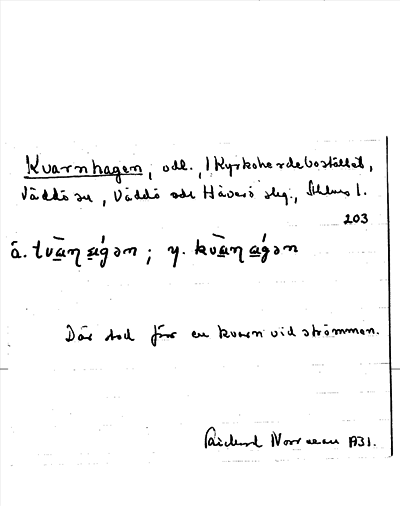 Kvarnhagen, odl., Kyrkoherdebostället,
Väddö sn, Väddö och Häverö slg., Sthlms l.
203
ä. tvàn ágən ; y. kvàn ágən
Där stod förr en kvarn vid strömmen.
Rickard Norrman 1931.